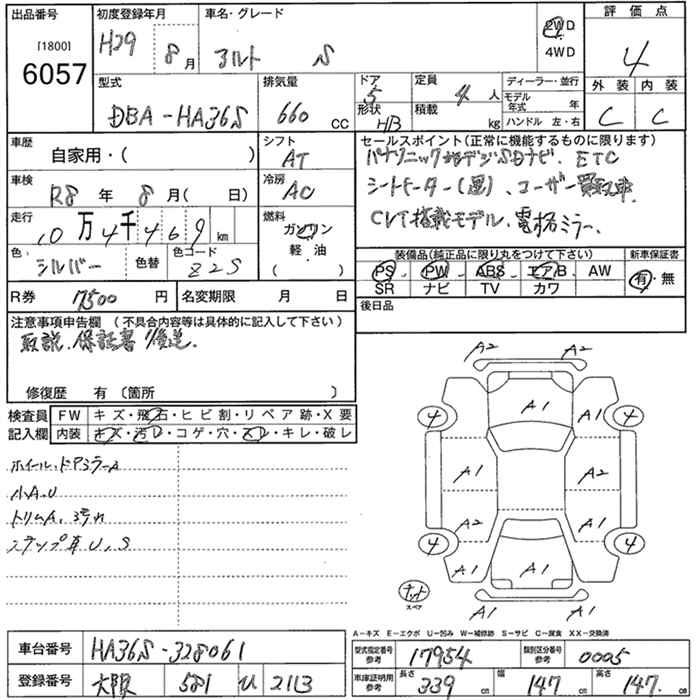 出品番号 初度登録年月 車名・グレード 評価点
[1800] H29 8月 アルト S 2WD 4
6057 4WD
外装 内装
型式 排気量 ドア 5 定員 4人 ディーラー・並行
DBA-HA36S 660 CC 形状 HB 積載 kg モデル年式 年 C C
ハンドル 左・右
車歴 シフト セールスポイント(正常に機能するものに限ります)
自家用・( ) AT パナソニック地デジSDナビ、ETC
車検 冷房 シートヒーター(運)、ユーザー買取車
R8年 8月( 日) AC CVT搭載モデル、電格ミラー、
走行 燃料
10万4千469km ガソリン
軽・油
色 シルバー 色替 色コード Z2S ( )
装備品(純正品に限り丸をつけて下さい) 新車保証書
PS PW ABS エアB AW 有・無
SR ナビ TV カワ
R券 17500円 名変期限 月 日 後日品
注意事項申告欄 (不具合内容等は具体的に記入して下さい)
取説、保証書 後送
修復歴 有(箇所 )
検査員 FW キズ・飛石・ヒビ割・リペア跡・X要
記入欄 内装 キズ・汚レ・コゲ・穴・スレ・キレ・破レ
ホイール、ドアミラーA
小A、U
トリムA、
ステップ U、S
A2 A2
A1
4 A1 4
A1 A2
A2 A1
4 4
A1 A1 A1
スペア
A1 A1
A-キズ E-エクボ U-凹み W-補修跡 S-サビ C-腐食 XX-交換済
車台番号 HA36S-328061 型式指定番号 参考 17954 類別区分番号 参考 0005
登録番号 大阪 581 い 2113 車庫証明用 参考 長さ 339cm 幅 147cm 高さ 147cm